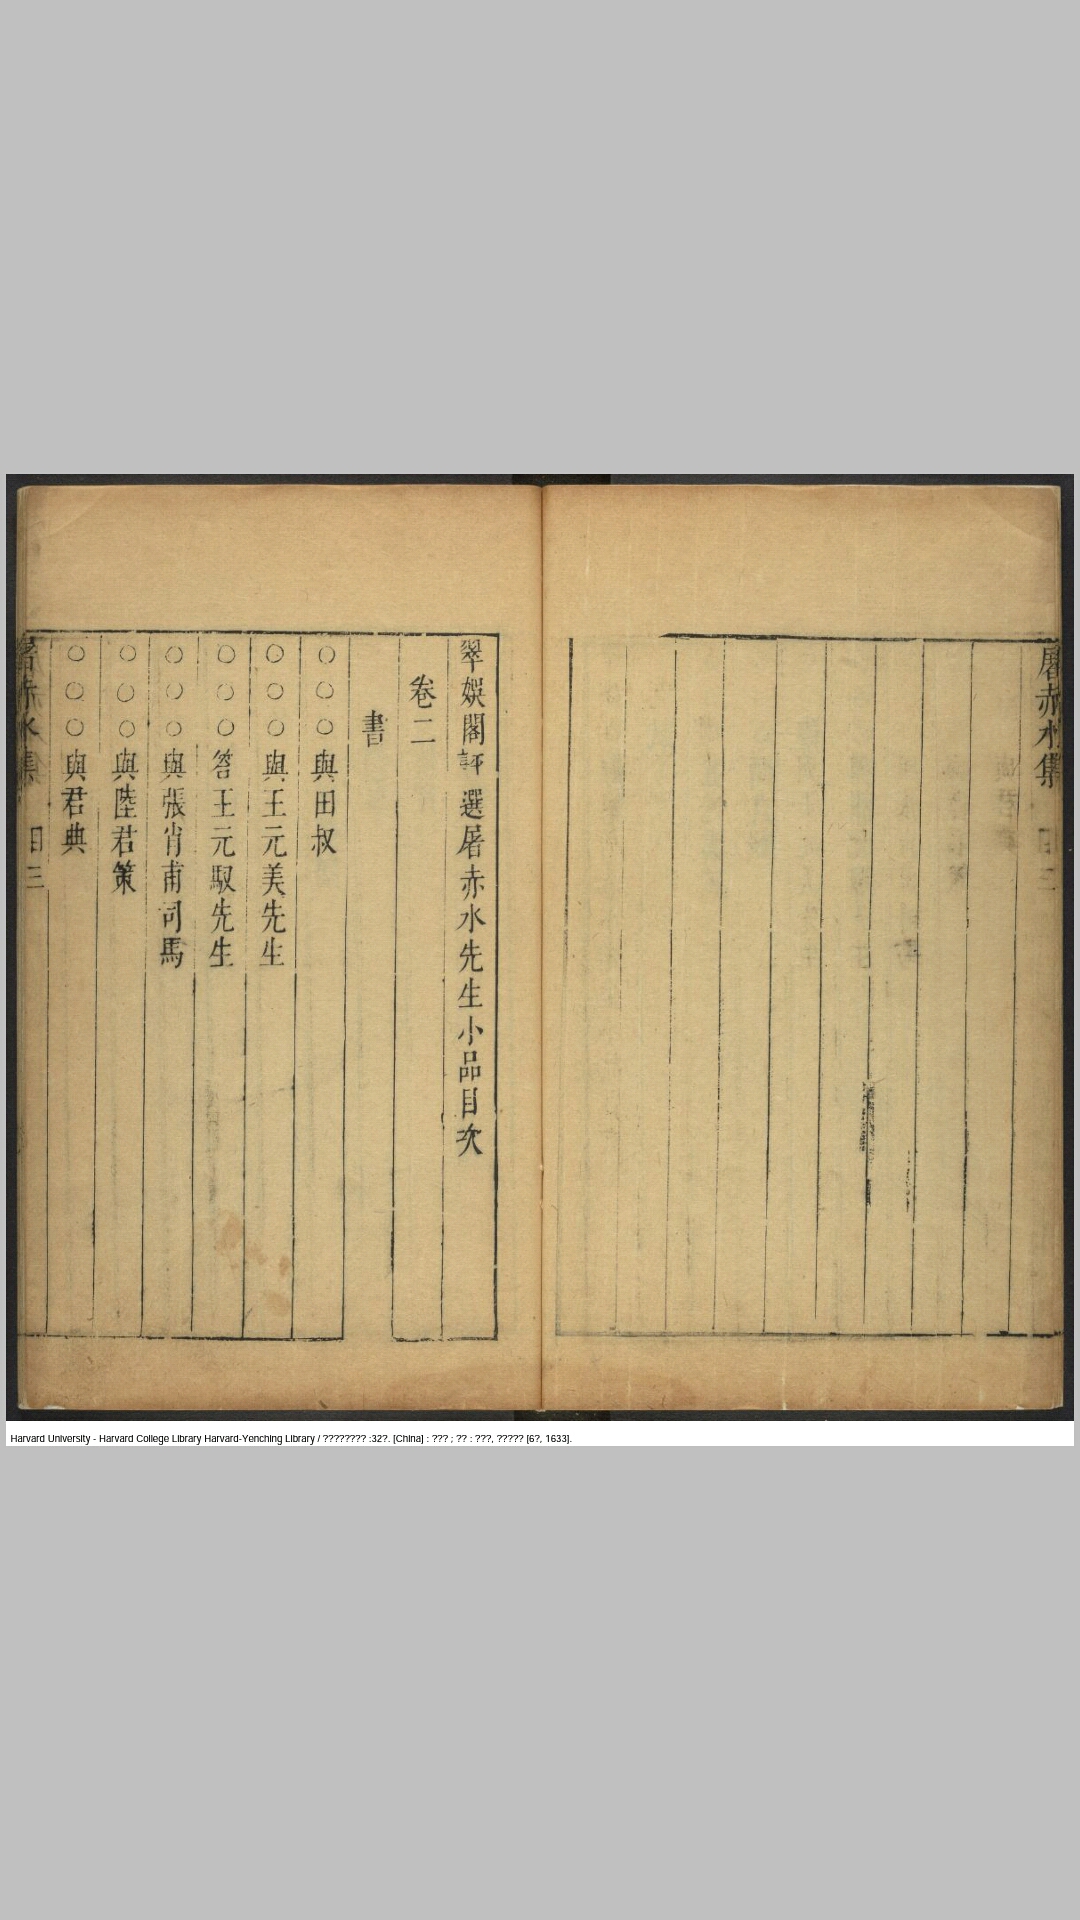 屠赤水集
目三
翠娛閣評選屠赤水先生小品目次
卷二
書
○○○與田叔
○○○與王元美先生
○○○答王元馭先生
○○○與張肖甫司馬
○○○與陸君策
○○○與君典
屠赤水集
目三
Harvard University - Harvard College Library Harvard-Yenching Library / ???????? :32?. [China] : ??? ; ?? : ???, ????? [6?, 1633].